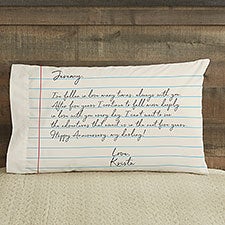 Jeremy,
I've fallen in love many times, always with you.
After five years I continue to fall more deeply
in love with you every day. I can't wait to see
the adventures that await us in the next five years.
Happy Anniversary, my darling!
Love,
Krista